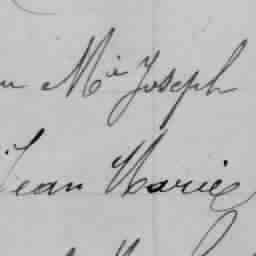 Mie Joseph
Jean Marie